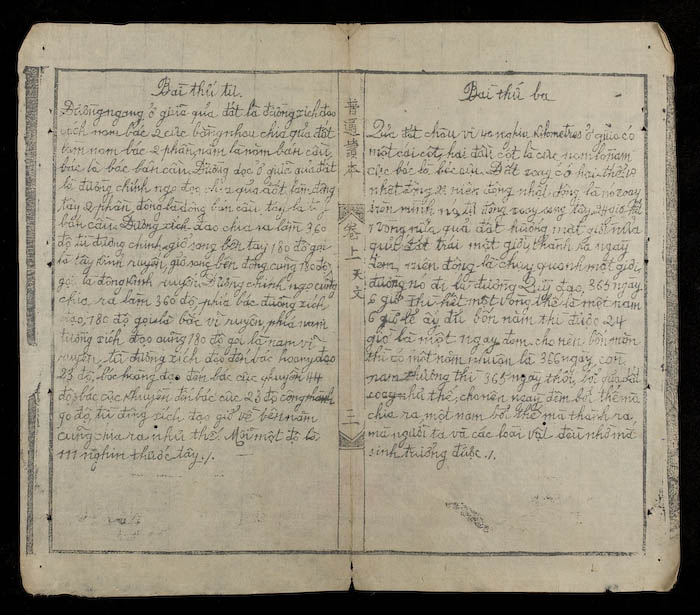 Bài thứ ba
Quả đất châu vi 40 nghìn kilomètres ở giữa có
một cái cốt, hai đầu cốt là cực nam tồn nam
cực bắc là bắc cực. Đất xoay có hai thể là
nhật động là nó xoay
trên mình nó tự động xoay sang tây
vòng nửa quả đất hướng mặt giời nửa
quả đất trái mặt giời thành ra ngày
đêm, niên động là chạy quanh mặt giời
đường nó đi là đường Quỹ đạo, 365 ngày
6 giờ thì hết một vòng thế là một năm
6 giờ lẻ ấy đủ bốn năm thì được 24
giờ là một ngày đêm, cho nên bốn năm
thì có một năm nhuận là 366 ngày còn
năm thường thì 365 ngày thôi, bởi quả đất
xoay như thế, cho nên ngày đêm bởi thế mà
chia ra, một năm bởi thế mà thành ra
mà người ta và các loài vật đều nhờ mà
sinh trưởng được ./.
普通讀本
卷上 天文
三
Bài thứ tư.
Đường ngang ở giữa quả đất là đường xích đạo
cách nam bắc 2 cực bằng nhau, chia quả đất
làm nam bắc 2 phần, nam là nam bán cầu,
bắc là bắc bán cầu. Đường dọc ở giữa quả đất
là đường chính ngọ dọc, chia quả đất làm đông
tây 2 phần, đông là đông bán cầu, tây là tây
bán cầu. Đường xích đạo chia ra làm 360
độ, từ đường chính giở sang bên tây 180 độ gọi
là tây kinh tuyến, giở sang bên đông cũng 180 độ
gọi là đông kinh tuyến. Đường chính ngọ cũng
chia ra làm 360 độ, phía bắc đường xích
đạo, 180 độ gọi là bắc vĩ tuyến, phía nam
đường xích đạo cũng 180 độ gọi là nam vĩ
tuyến, từ đường xích đạo đến bắc hoàng đạo
23 độ, bắc hoàng đạo đến bắc cực khuyên 44
độ, bắc cực khuyên đến bắc cực 23 độ cộng thành
90 độ, từ đường xích đạo giở về bên nam
cũng chia ra như thế. Mỗi một độ là
111 nghìn thước tây ./.